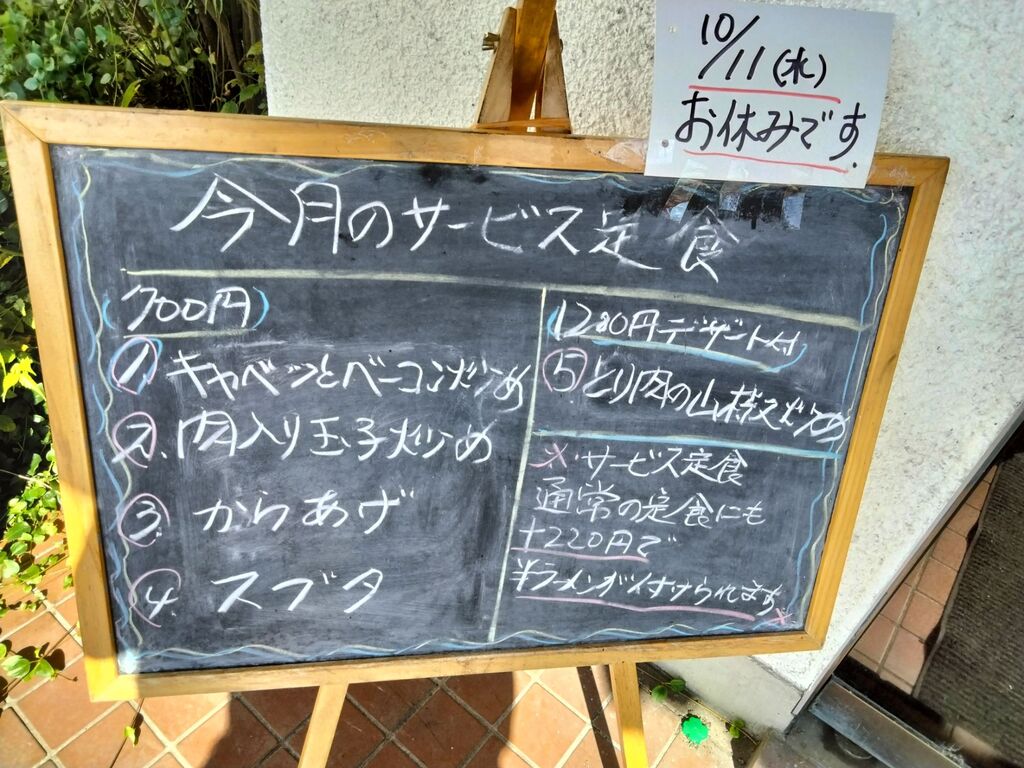 10/11(水)
お休みです.
今月のサービス定食
(700円)
① キャベツとベーコン炒め
②. 肉入り玉子炒め
③. からあげ
④. スブタ
(1200円デザート付)
⑤ とり肉の山椒炒め
※サービス定食
通常の定食にも
+220円で
半ラーメンが付けられます※